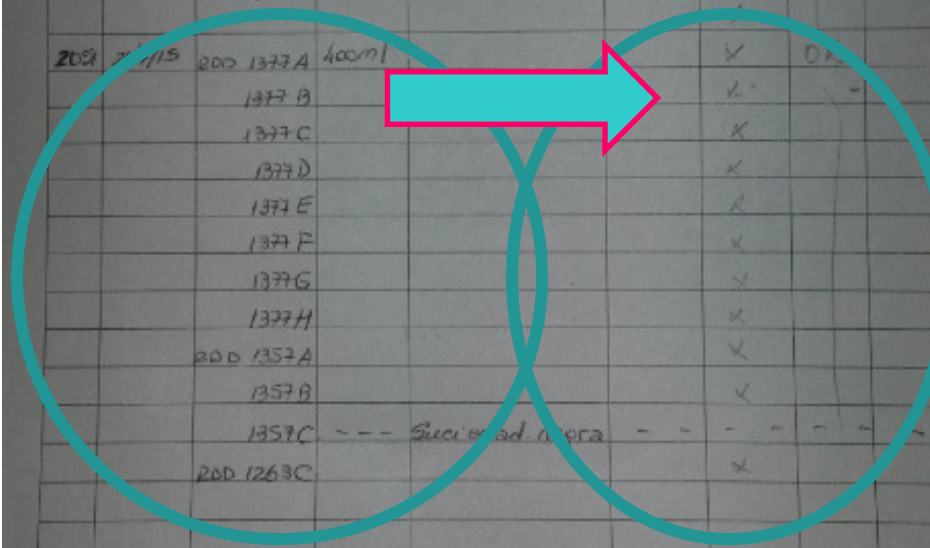 2051 RDD 1377A 400ml X OK
1377 B X -
1377 C X
1377 D X
1377 E X
1377 F X
1377 G X
1377 H X
RDD 1357 A X
1357 B X
1357 C - - - Suciedad - - - - - - -
RDD 1263 C X